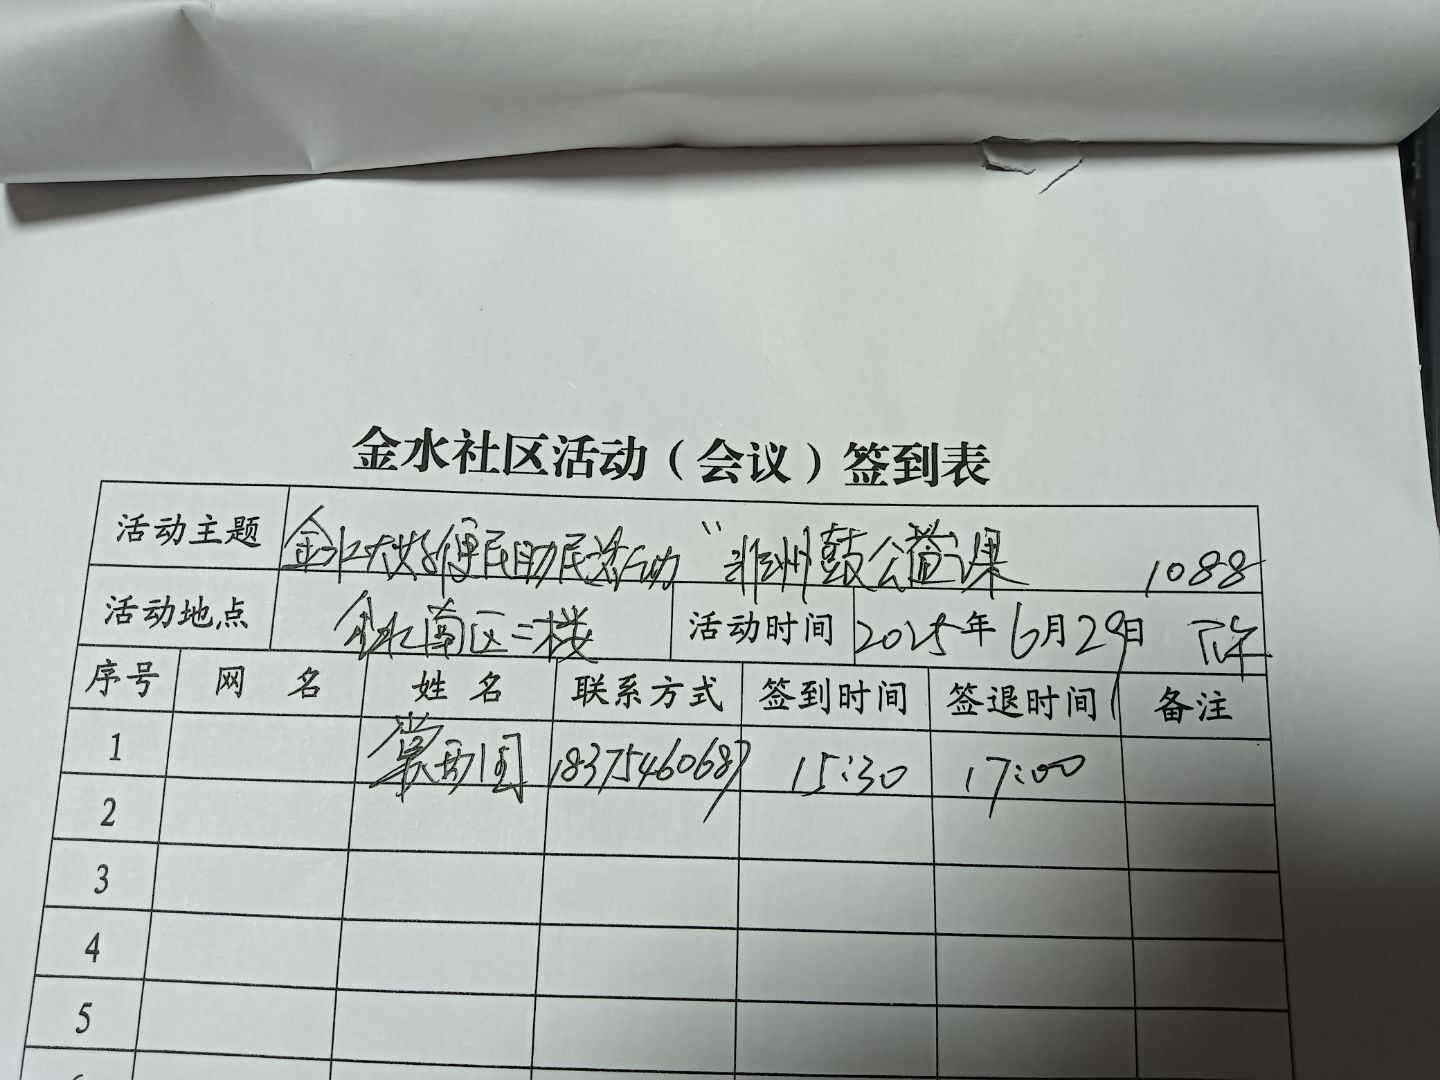 金水社区活动（会议）签到表
活动主题 金水大好便民助民活动 “非洲鼓公益课 1088
活动地点 金水南区二楼 活动时间 2025年6月29日 下午
序号 网 名 姓 名 联系方式 签到时间 签退时间 备注
1 国 18375460687 15:30 17:00
2
3
4
5